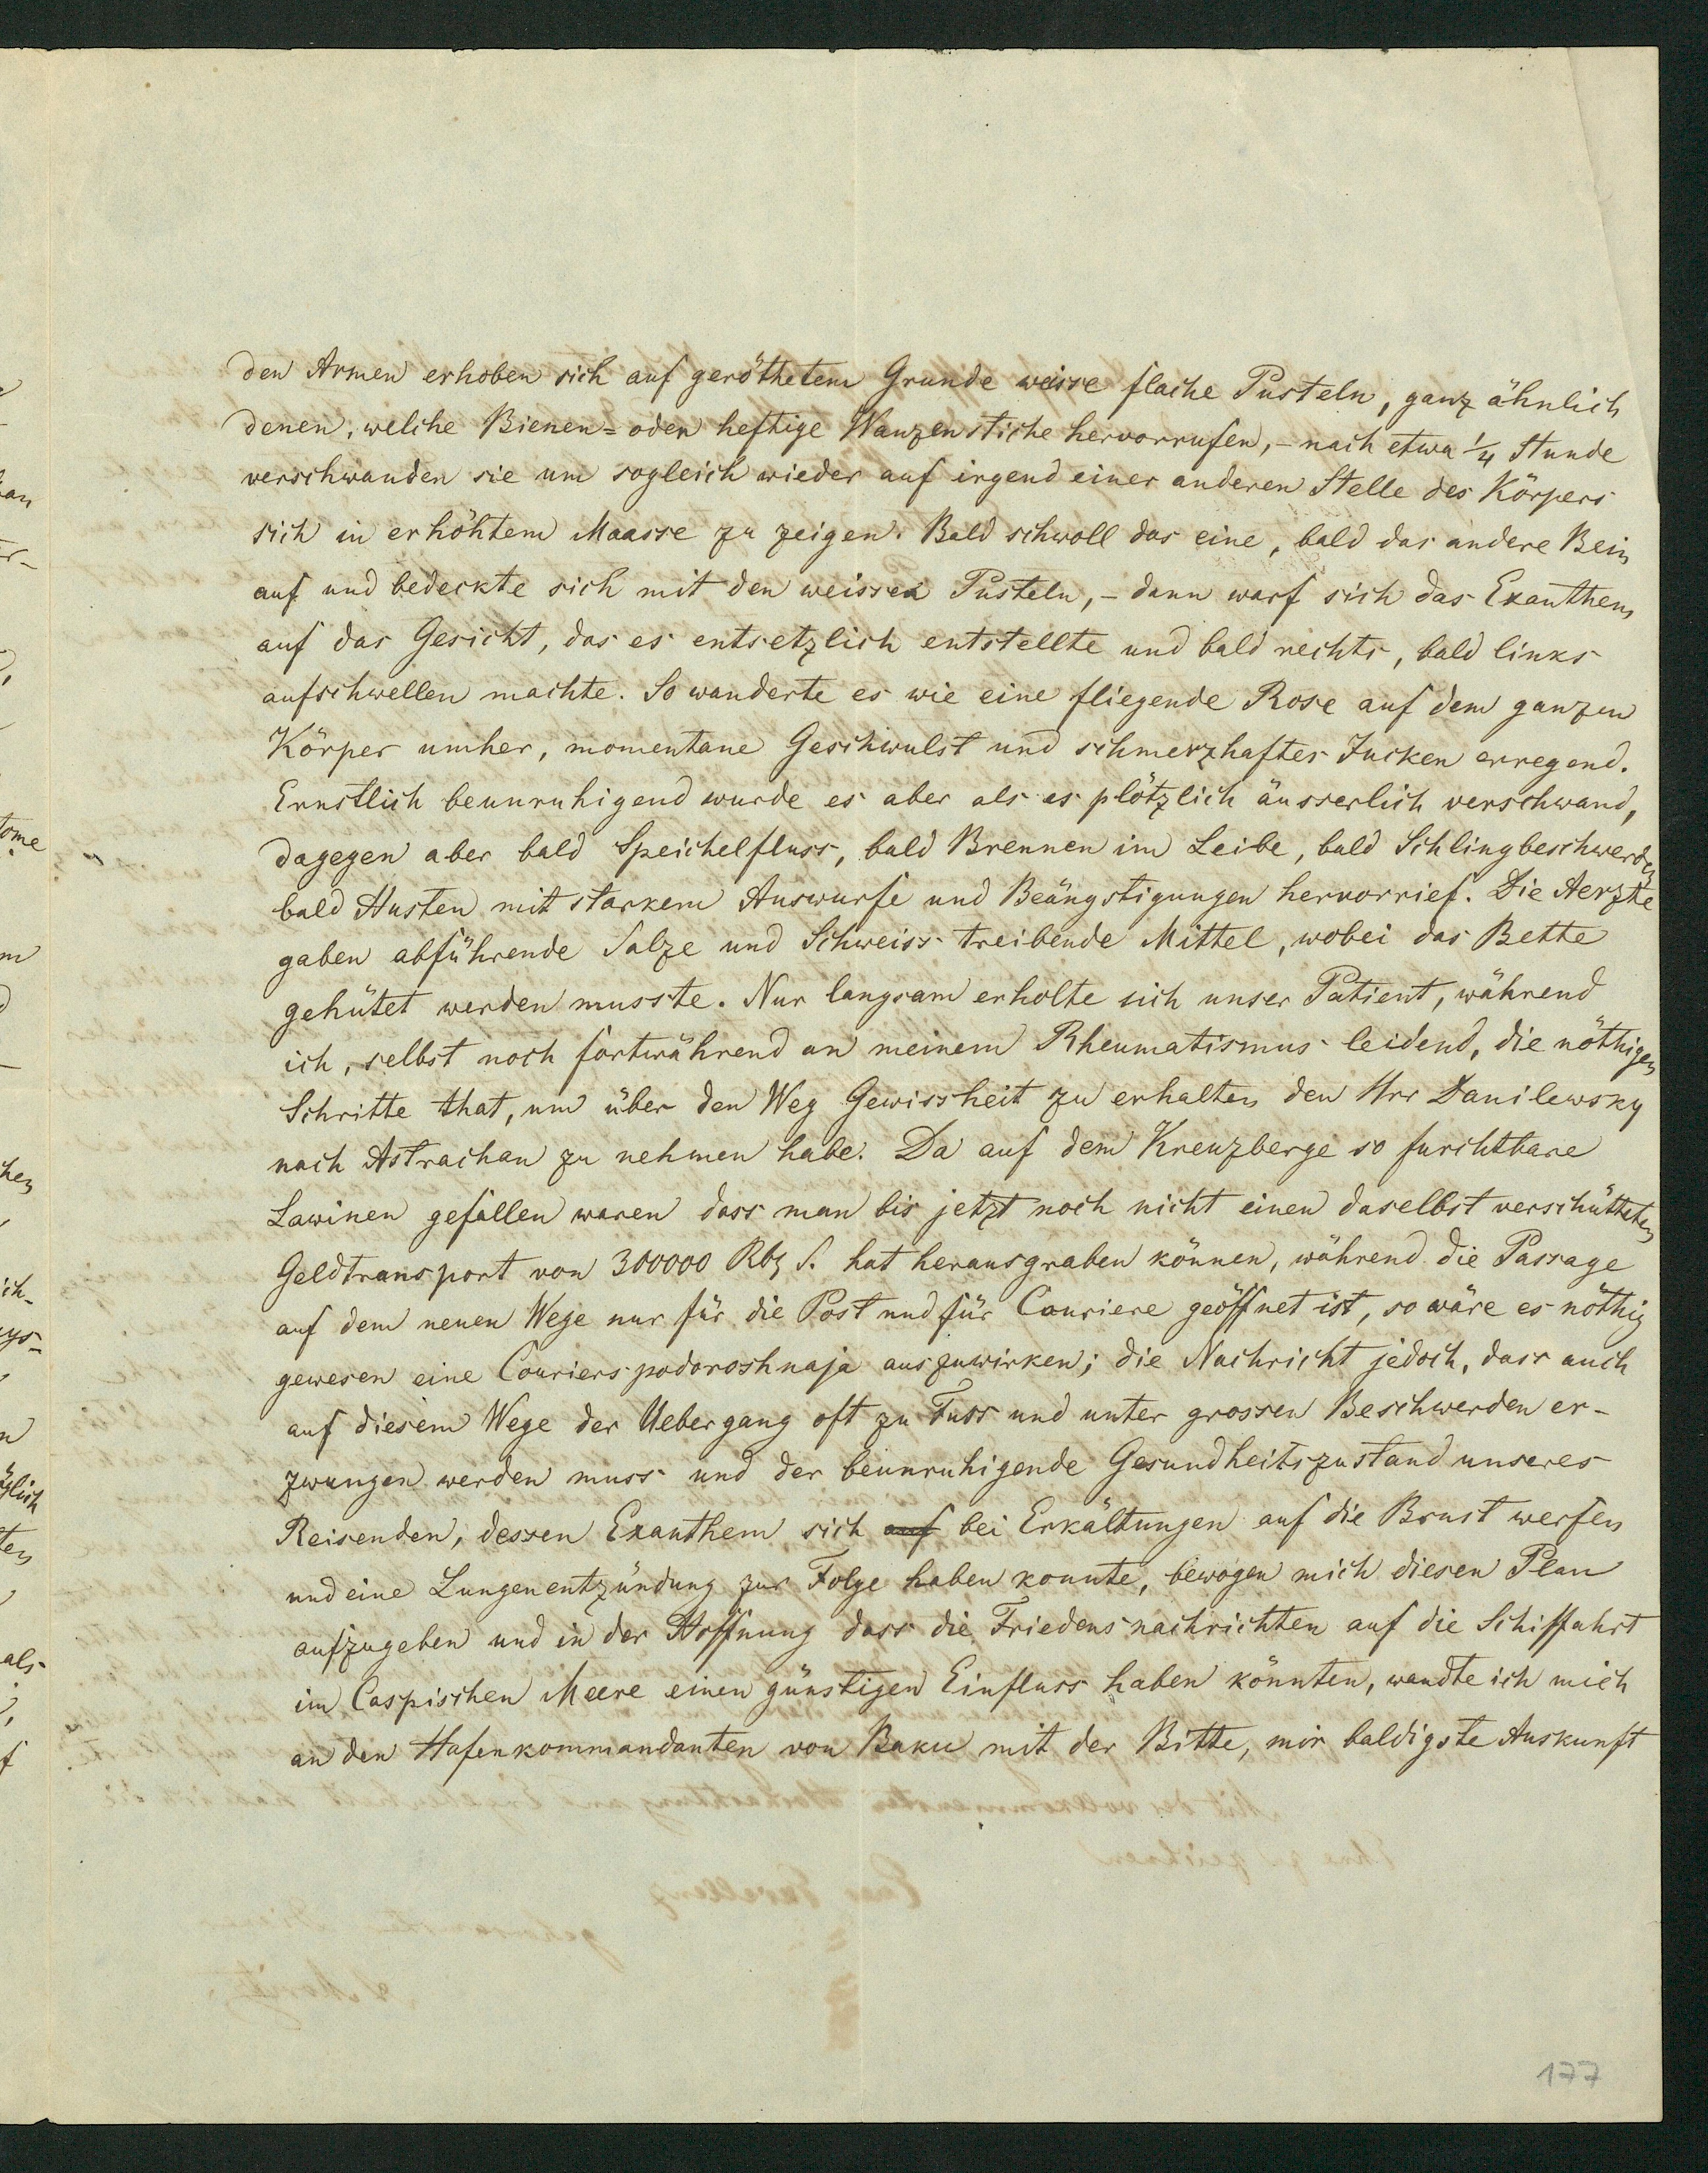 den Armen erhoben sich auf geröthetem Grunde weisse flache Pusteln, ganz ähnlich
denen, welche Bienen= oder heftige Wanzenstiche hervorrufen, – nach etwa 1/4 Stunde
verschwanden sie um sogleich wieder auf irgend einer anderen Stelle des Körpers
sich in erhöhtem Maasse zu zeigen. Bald schwoll das eine, bald das andere Bein
auf und bedeckte sich mit den weissen Pusteln, – dann warf sich das Exanthem
auf das Gesicht, das es entsetzlich entstellte und bald rechts, bald links
aufschwellen machte. So wanderte es wie eine fliegende Rose auf dem ganzen
Körper umher, momentane Geschwulst und schmerzhaftes Jucken erregend.
Ernstlich beunruhigend wurde es aber als es plötzlich äusserlich verschwand,
dagegen aber bald Speichelfluss, bald Brennen im Leibe, bald Schlingbeschwerden
bald Husten mit starkem Auswurfe und Beängstigungen hervorrief. Die Aerzte
gaben abführende Salze und Schweiss treibende Mittel, wobei das Bette
gehütet werden musste. Nur langsam erholte sich unser Patient, während
ich, selbst noch fortwährend an meinem Rheumatismus leidend, die nöthigen
Schritte that, um über den Weg Gewissheit zu erhalten den Hrr Danilewsky
nach Astrachan zu nehmen habe. Da auf dem Kreuzberge so furchtbare
Lawinen gefallen waren dass man bis jetzt noch nicht einen daselbst verschütteten
Geldtransport von 300000 Rbl S. hat herausgraben können, während die Passage
auf dem neuen Wege nur für die Post und für Couriere geöffnet ist, so wäre es nöthig
gewesen eine Courierspodoroshnaja auszuwirken; die Nachricht jedoch, dass auch
auf diesem Wege der Uebergang oft zu Fuss und unter grossen Beschwerden er-
zwungen werden muss und der beunruhigende Gesundheitszustand unseres
Reisenden, dessen Exanthem sich auf bei Erkältungen auf die Brust werfen
und eine Lungenentzündung zur Folge haben konnte, bewogen mich diesen Plan
aufzugeben und in der Hoffnung dass die Friedensnachrichten auf die Schiffahrt
im Caspischen Meere einen günstigen Einfluss haben könnten, wandte ich mich
an den Hafenkommandanten von Baku mit der Bitte, mir baldigste Auskunft
177